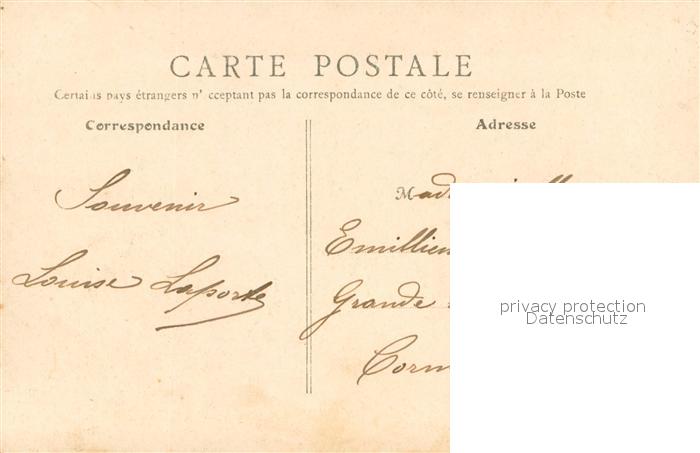 CARTE POSTALE
Certains pays étrangers n'acceptant pas la correspondance de ce côté, se renseigner à la Poste
Correspondance
Adresse
Souvenir
Louise Laporte
Grande
privacy protection
Datenschutz